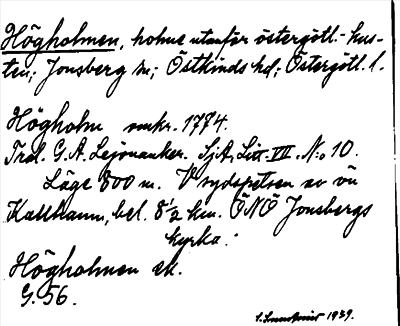 Högholmen, holme utanför östergötl. kus-
ten; Jonsberg sn; Östkinds hd; Östergötl. l.
Högholm omkr. 1774.
Trol. G. A. Lejonanker. SjA, Litt. VII. No 10.
Läge 800 m. V sydspetsen av ön
Kallhamn, bel. 8 1/2 km. ÖNÖ Jonsbergs
kyrka.
Högholmen ek.
G. 56.
1939.